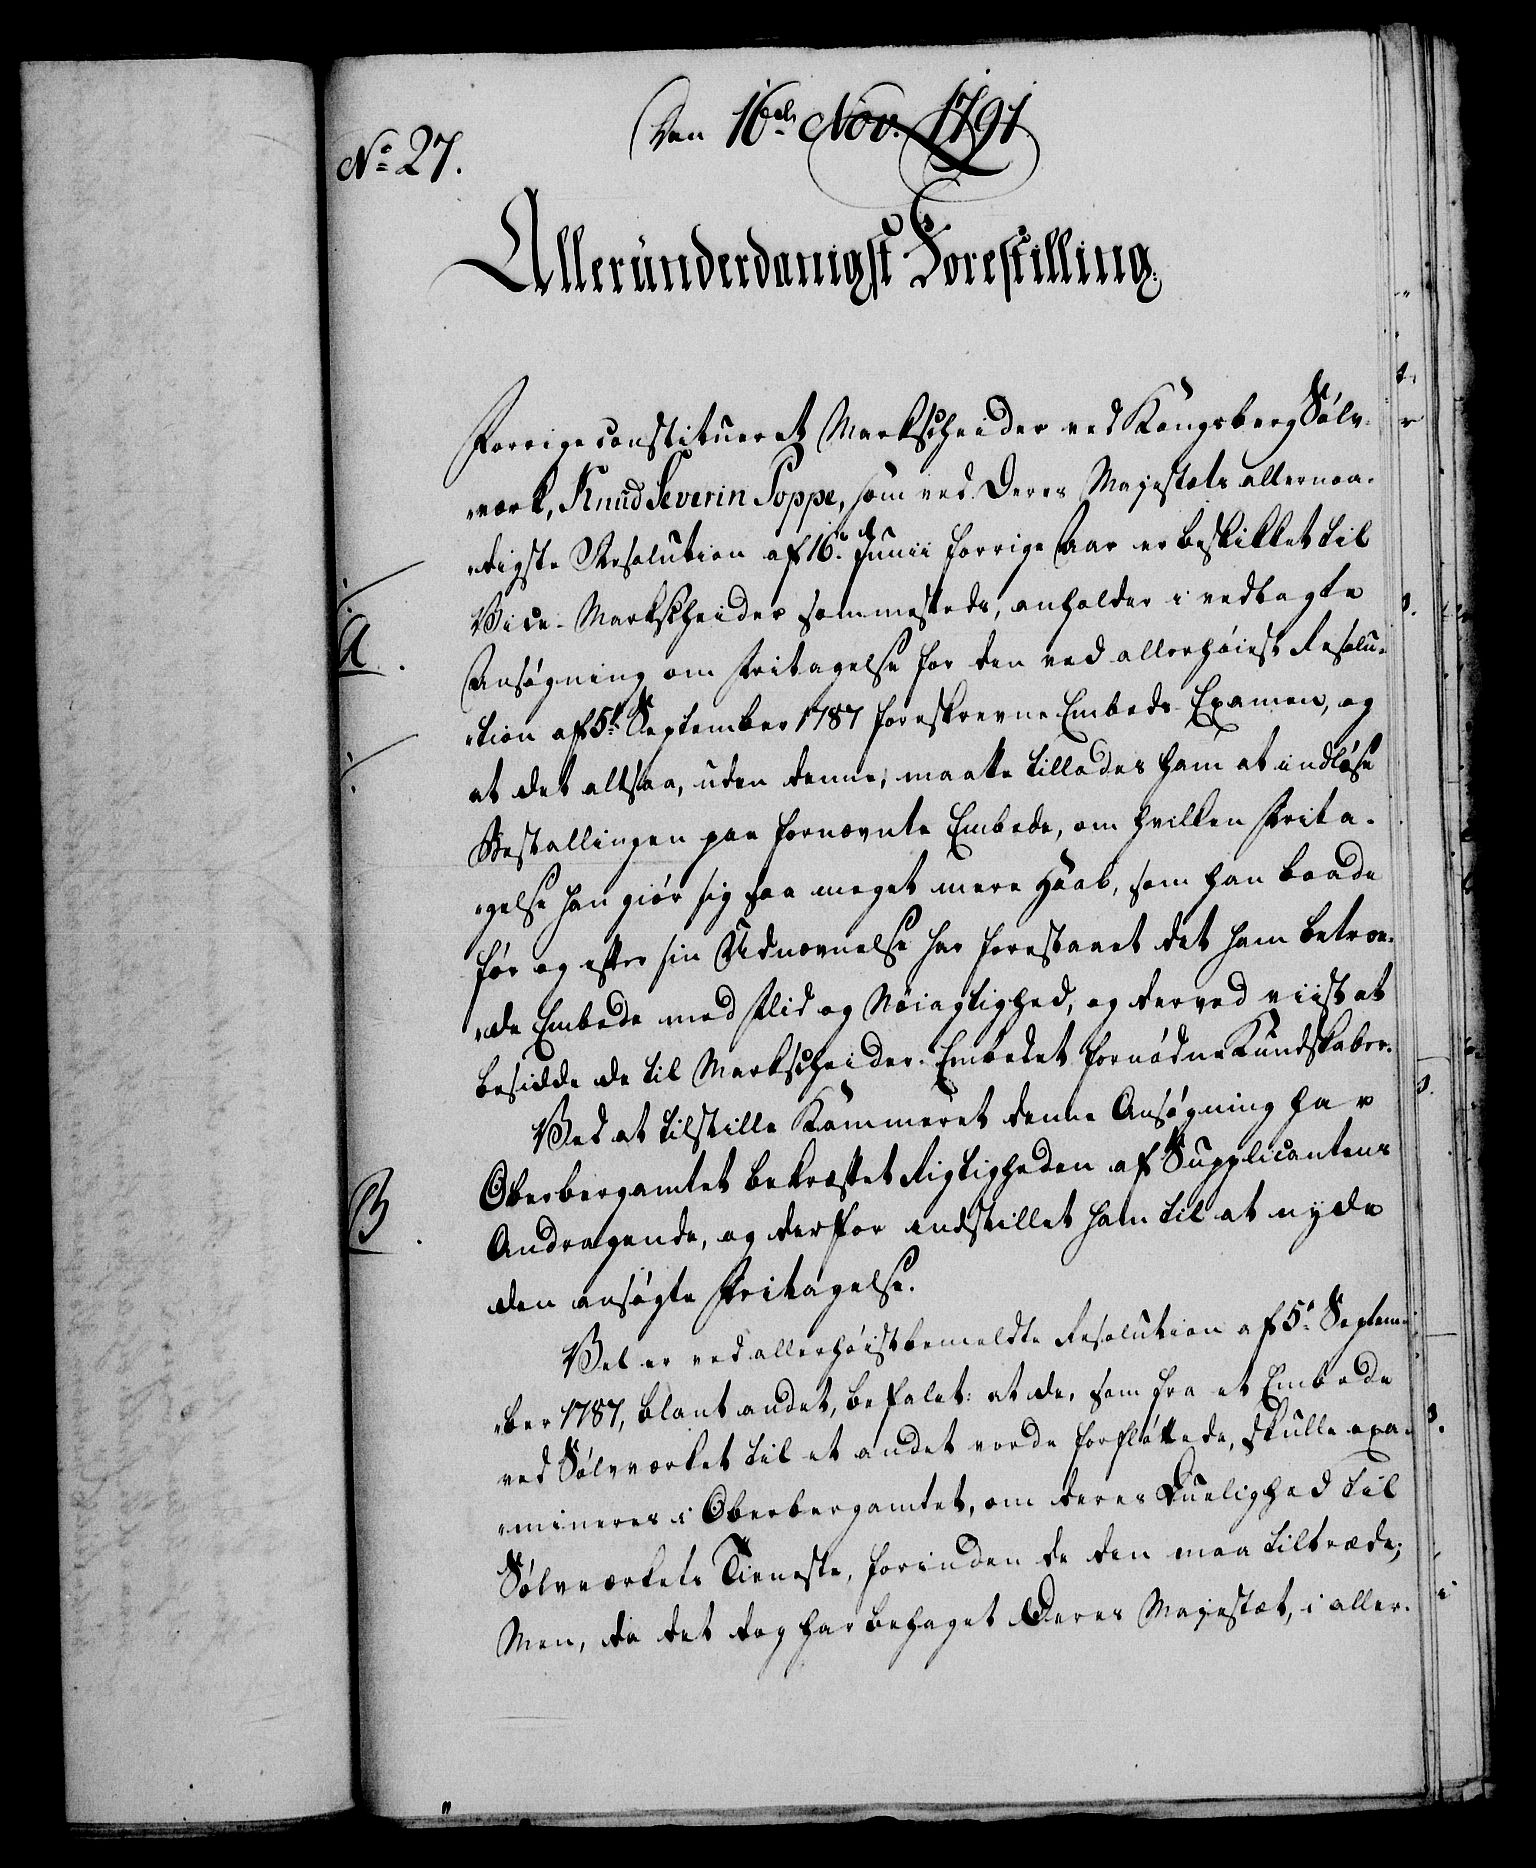 Den 16de Nov. 1791
No 27.
Allerunderdanigst Forestilling.
Forrige constitueret Markscheider ved Kongsberg Sølv-
værk, Knud Severin Poppe, som ved Deres Majestæts allernaa-
digste Resolution af 16de Junii forrige Aar er beskikket til
Vice-Markscheider sammesteds, anholder i vedlagte
A. Ansøgning om Fritagelse for den ved allerhøiest Resolu-
tion af 5te September 1787 foreskrevne Embeds-Examen, og
at det altsaa, uden denne, maatte tillades ham at indløse
Bestallingen paa fornævnte Embede, om hvilken Frita-
gelse han giør sig saa meget mere Haab, som han baade
før og efter sin Udnævnelse har forestaaet det ham betroe-
de Embede med Flid og Nøiagtighed, og derved viist at
besidde de til Markscheider-Embedet fornødne Kundskaber.
Ved at tilstille Kammeret denne Ansøgning har
B. Oberbergamtet bekræftet Rigtigheden af Supplicantens
Andragende, og derfor indstillet ham til at nyde
den ansøgte Fritagelse.
Vel er ved allerhøistbemeldte Resolution af 5te Septem-
ber 1787, blant andet, befalet: at de, som fra et Embede
ved Sølvværket til et andet vorde forfløttede, skulle exa-
mineres i Oberbergamtet, om deres Duelighed til
Sølvværkets Tieneste, forinden de den maa tiltræde;
Men, da det dog har behaget Deres Majestæt, i aller-